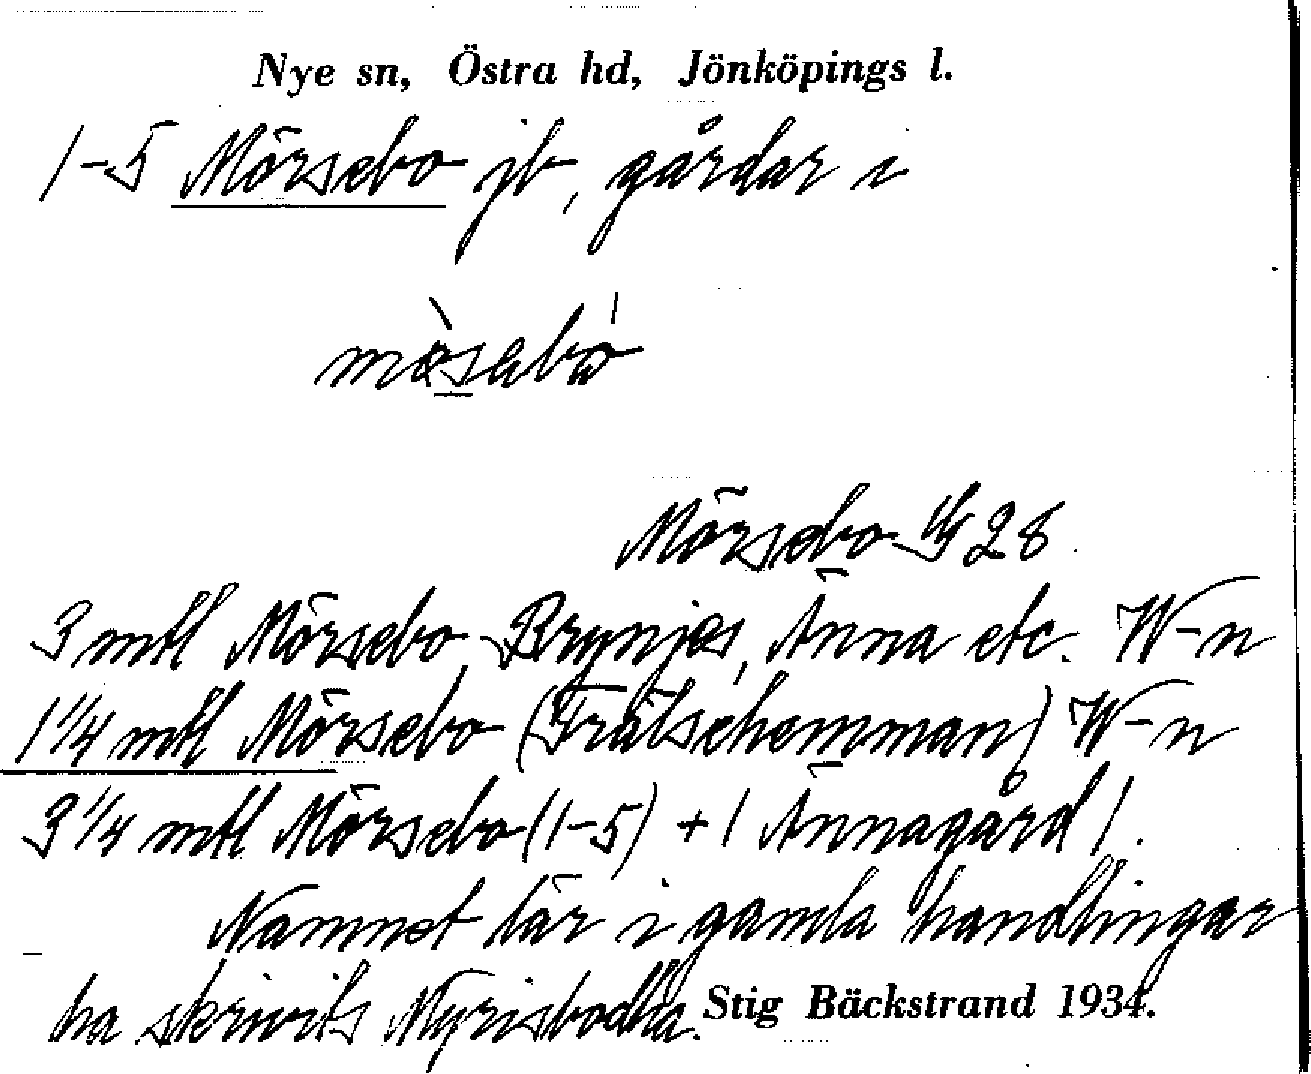 Nye sn, Östra hd, Jönköpings l.
1-5 Mörsebo jb, gårdar i
Mörsebo 28
3 mtl Mörsebo, Brynjes, Änna etc. W-n
1 1/4 mtl Mörsebo (Frälsehemman) W-n
3 1/4 mtl Mörsebo (1-5) + 1 Ännagård 1.
Namnet lär i gamla handlingar
ha skrivits Myrisbodha. Stig Bäckstrand 1934.